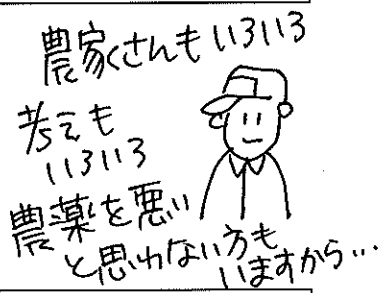 農家さんもいろいろ
考えも
いろいろ
農薬を悪い
と思わない方も
いますから…